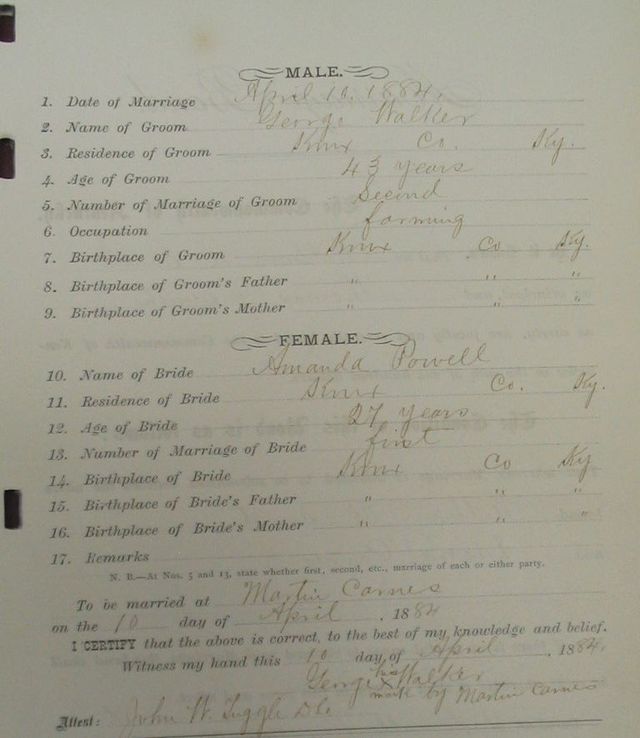 MALE.
1. Date of Marriage April 10, 1884.
2. Name of Groom George Walker
3. Residence of Groom Knox Co. Ky.
4. Age of Groom 43 years
5. Number of Marriage of Groom Second
6. Occupation farming
7. Birthplace of Groom Knox Co Ky.
8. Birthplace of Groom's Father " " "
9. Birthplace of Groom's Mother " " "
FEMALE.
10. Name of Bride Amanda Powell
11. Residence of Bride Knox Co. Ky.
12. Age of Bride 27 years
13. Number of Marriage of Bride first
14. Birthplace of Bride Knox Co Ky
15. Birthplace of Bride's Father " " "
16. Birthplace of Bride's Mother " " "
17. Remarks
N. B.—At Nos. 5 and 13, state whether first, second, etc., marriage of each or either party.
To be married at Martin Carnes
on the 10 day of April, 1884
I CERTIFY that the above is correct, to the best of my knowledge and belief.
Witness my hand this 10 day of April, 1884.
his
George X Walker
mark by Martin Carnes
Attest: John W. Tuggle